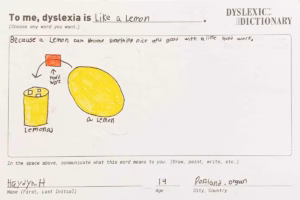 To me, dyslexia is Like a Lemon.
DYSLEXIC DICTIONARY
(Choose any word you want.)
Because a Lemon can become something nice and good with a little hard work.
hard work
Lemonade
a Lemon
In the space above, communicate what this word means to you. (Draw, paint, write, etc.)
H 14 Portland, oregon
Name (First, Last Initial) Age City, Country